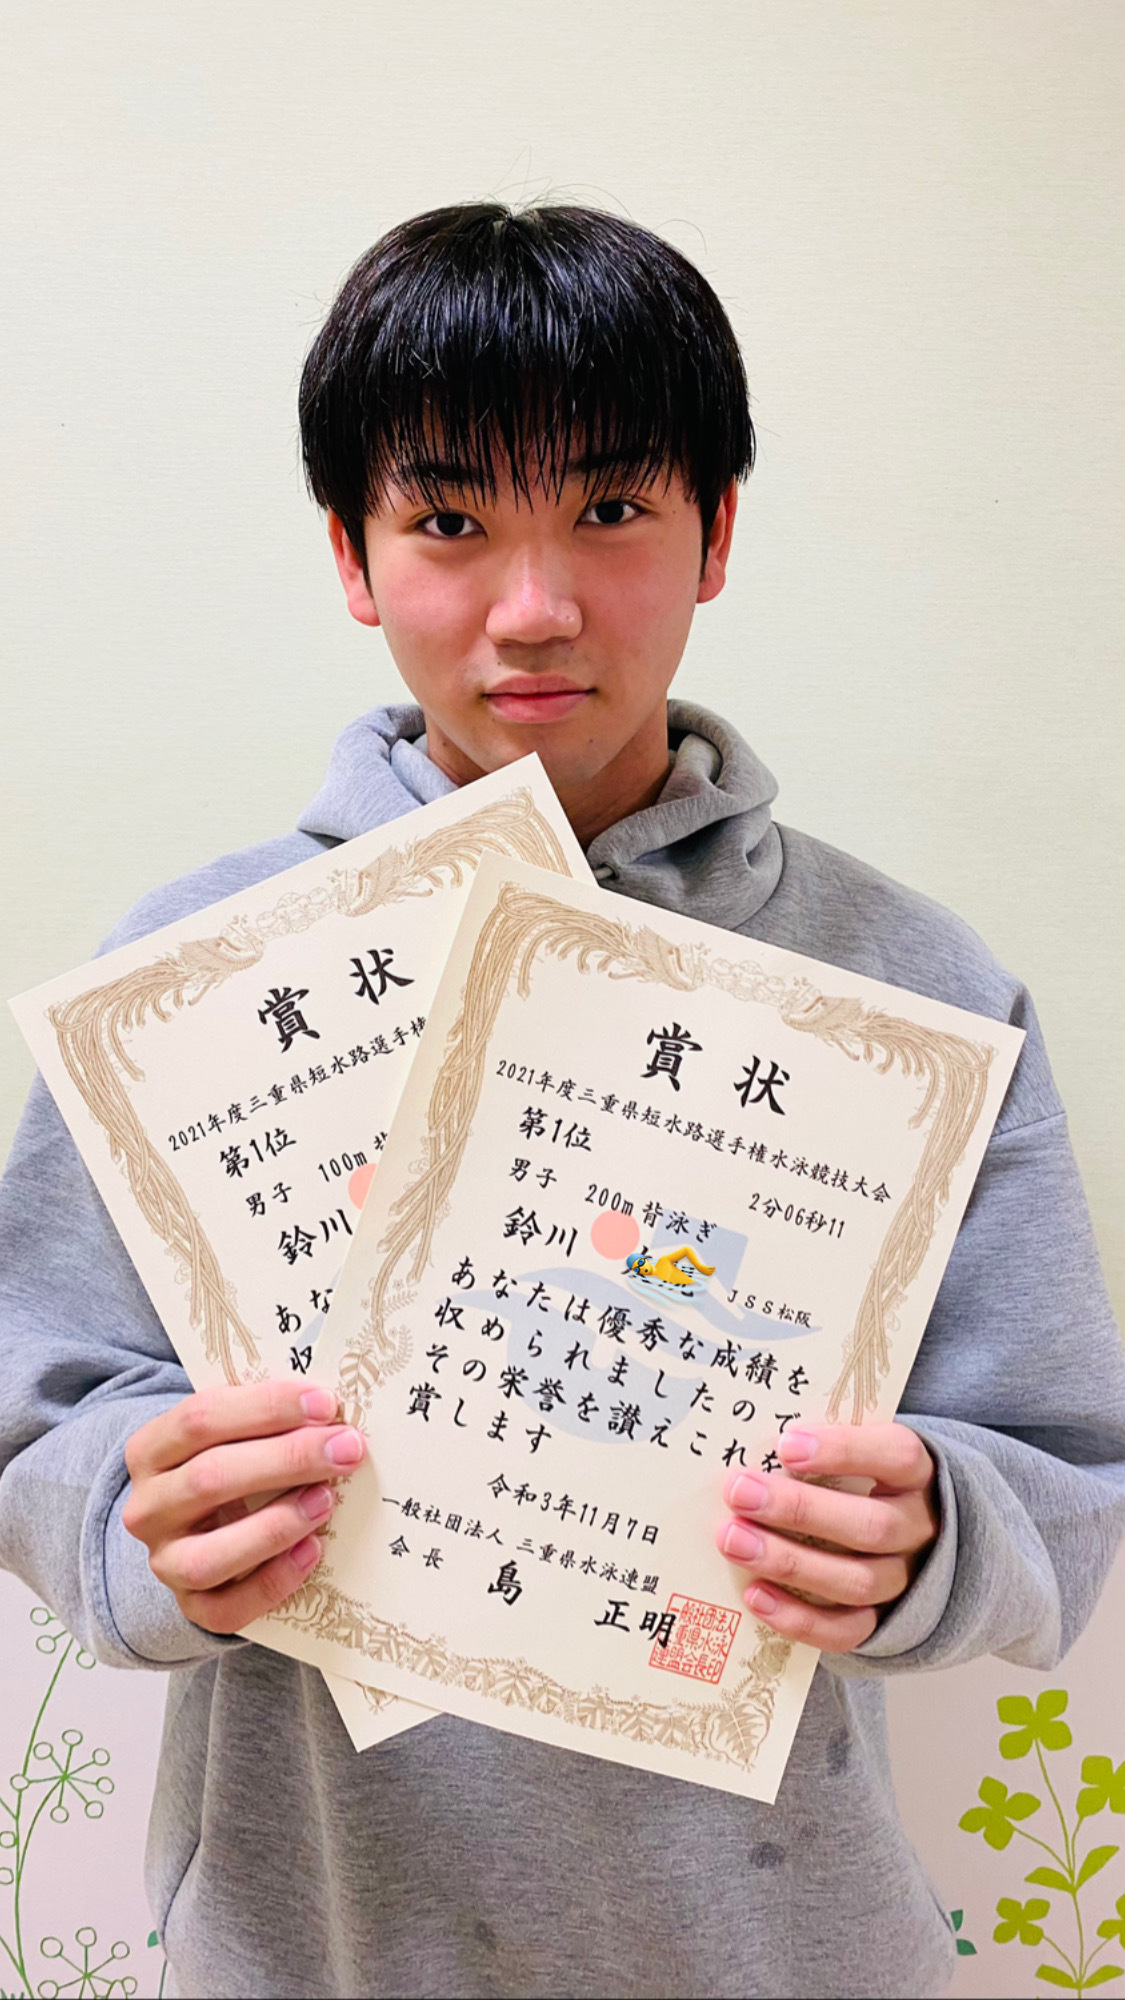 賞状
2021年度三重県短水路選手権
第1位
男子 100m
鈴川
あな
収
賞状
2021年度三重県短水路選手権水泳競技大会
第1位
男子 200m 背泳ぎ 2分06秒11
鈴川 JSS松阪
あなたは優秀な成績を
収められましたので
その栄誉を讃えこれを
賞します
令和3年11月7日
一般社団法人 三重県水泳連盟
会長 島 正明
一般社団法人
三重県水泳
連盟会長印